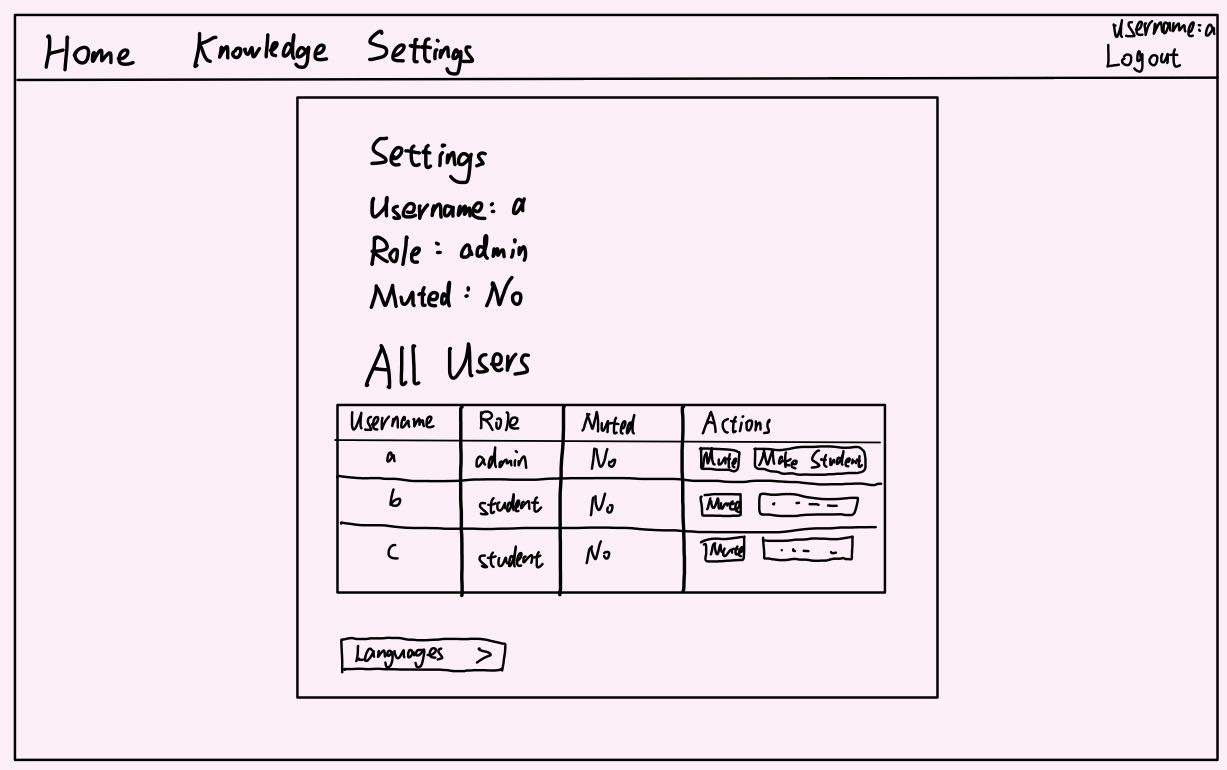 Home Knowledge Settings
Username: a
Logout
Settings
Username: a
Role: admin
Muted: No
All Users
Username Role Muted Actions
a admin No Mute Make Student
b student No Mute . - - -
c student No Mute . . - -
Languages >